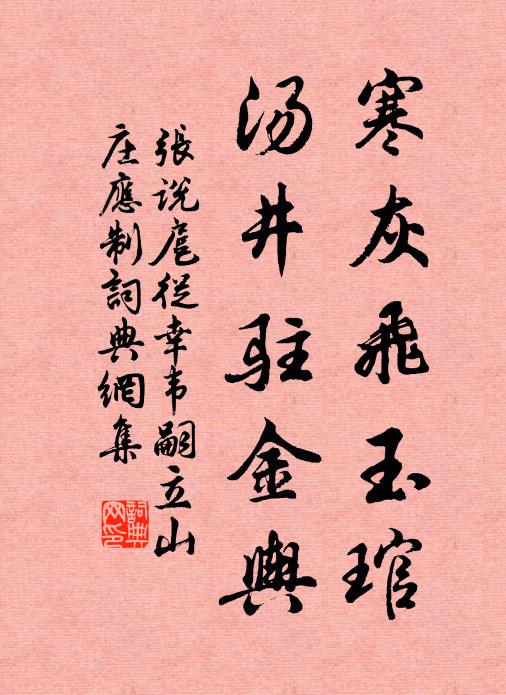 寒灰飛玉琯
汤井駐金輿
張说扈從幸韦嗣立山
庄應制詞典網集
詞典
网印